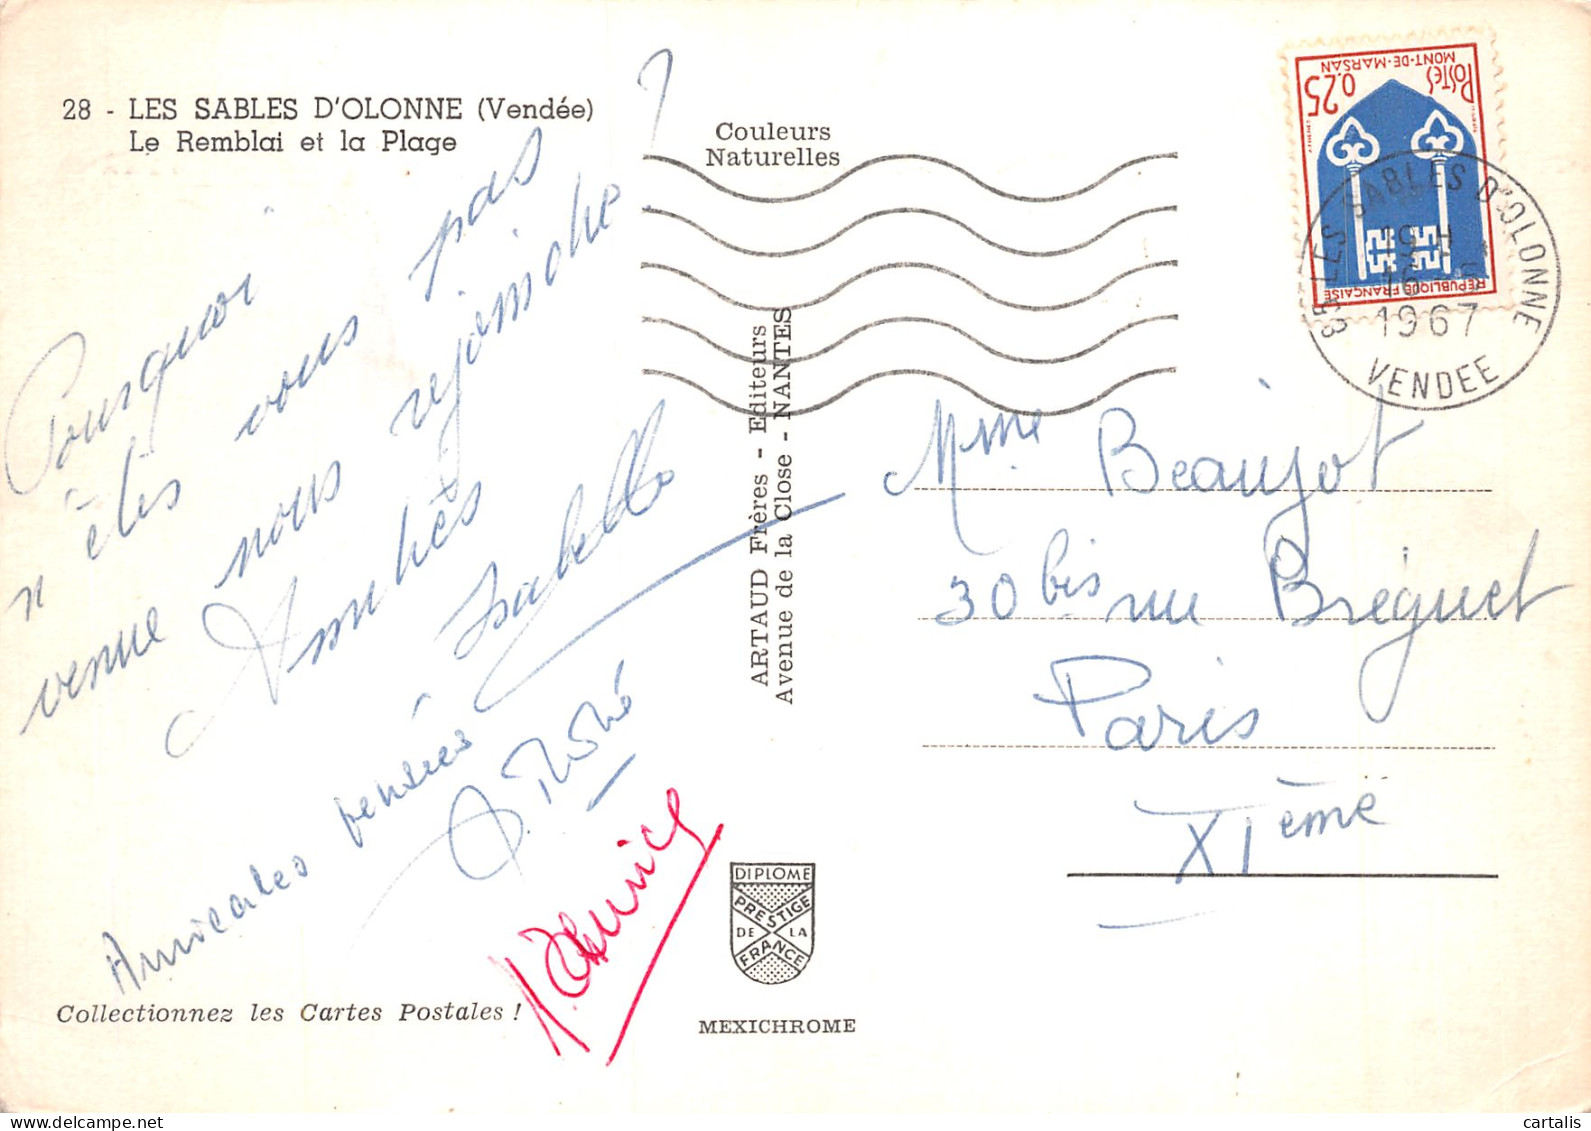 28 - LES SABLES D'OLONNE (Vendée)
Le Remblai et la Plage
Couleurs
Naturelles
Pourquoi
n'êtes vous pas
venue nous rejoindre ?
Amitiés
Isabelle
Amicales pensées
ARTAUD Frères - Editeurs
Avenue de la Close - NANTES
POSTES
0.25
MONT-DE-MARSAN
REPUBLIQUE FRANÇAISE
85 LES SABLES D'OLONNE
19 H
1967
VENDEE
Mme Beaujot
30 bis rue Bréguet
Paris
XIème
DIPLOME
PRESTIGE
DE LA
FRANCE
MEXICHROME
Collectionnez les Cartes Postales !
cartalis